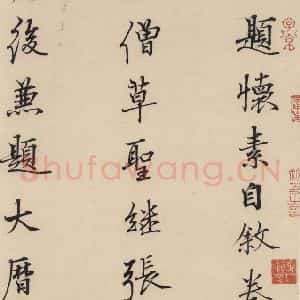 題懷素自敘卷
僧草聖繼張
後兼題大曆
shufawang.CN